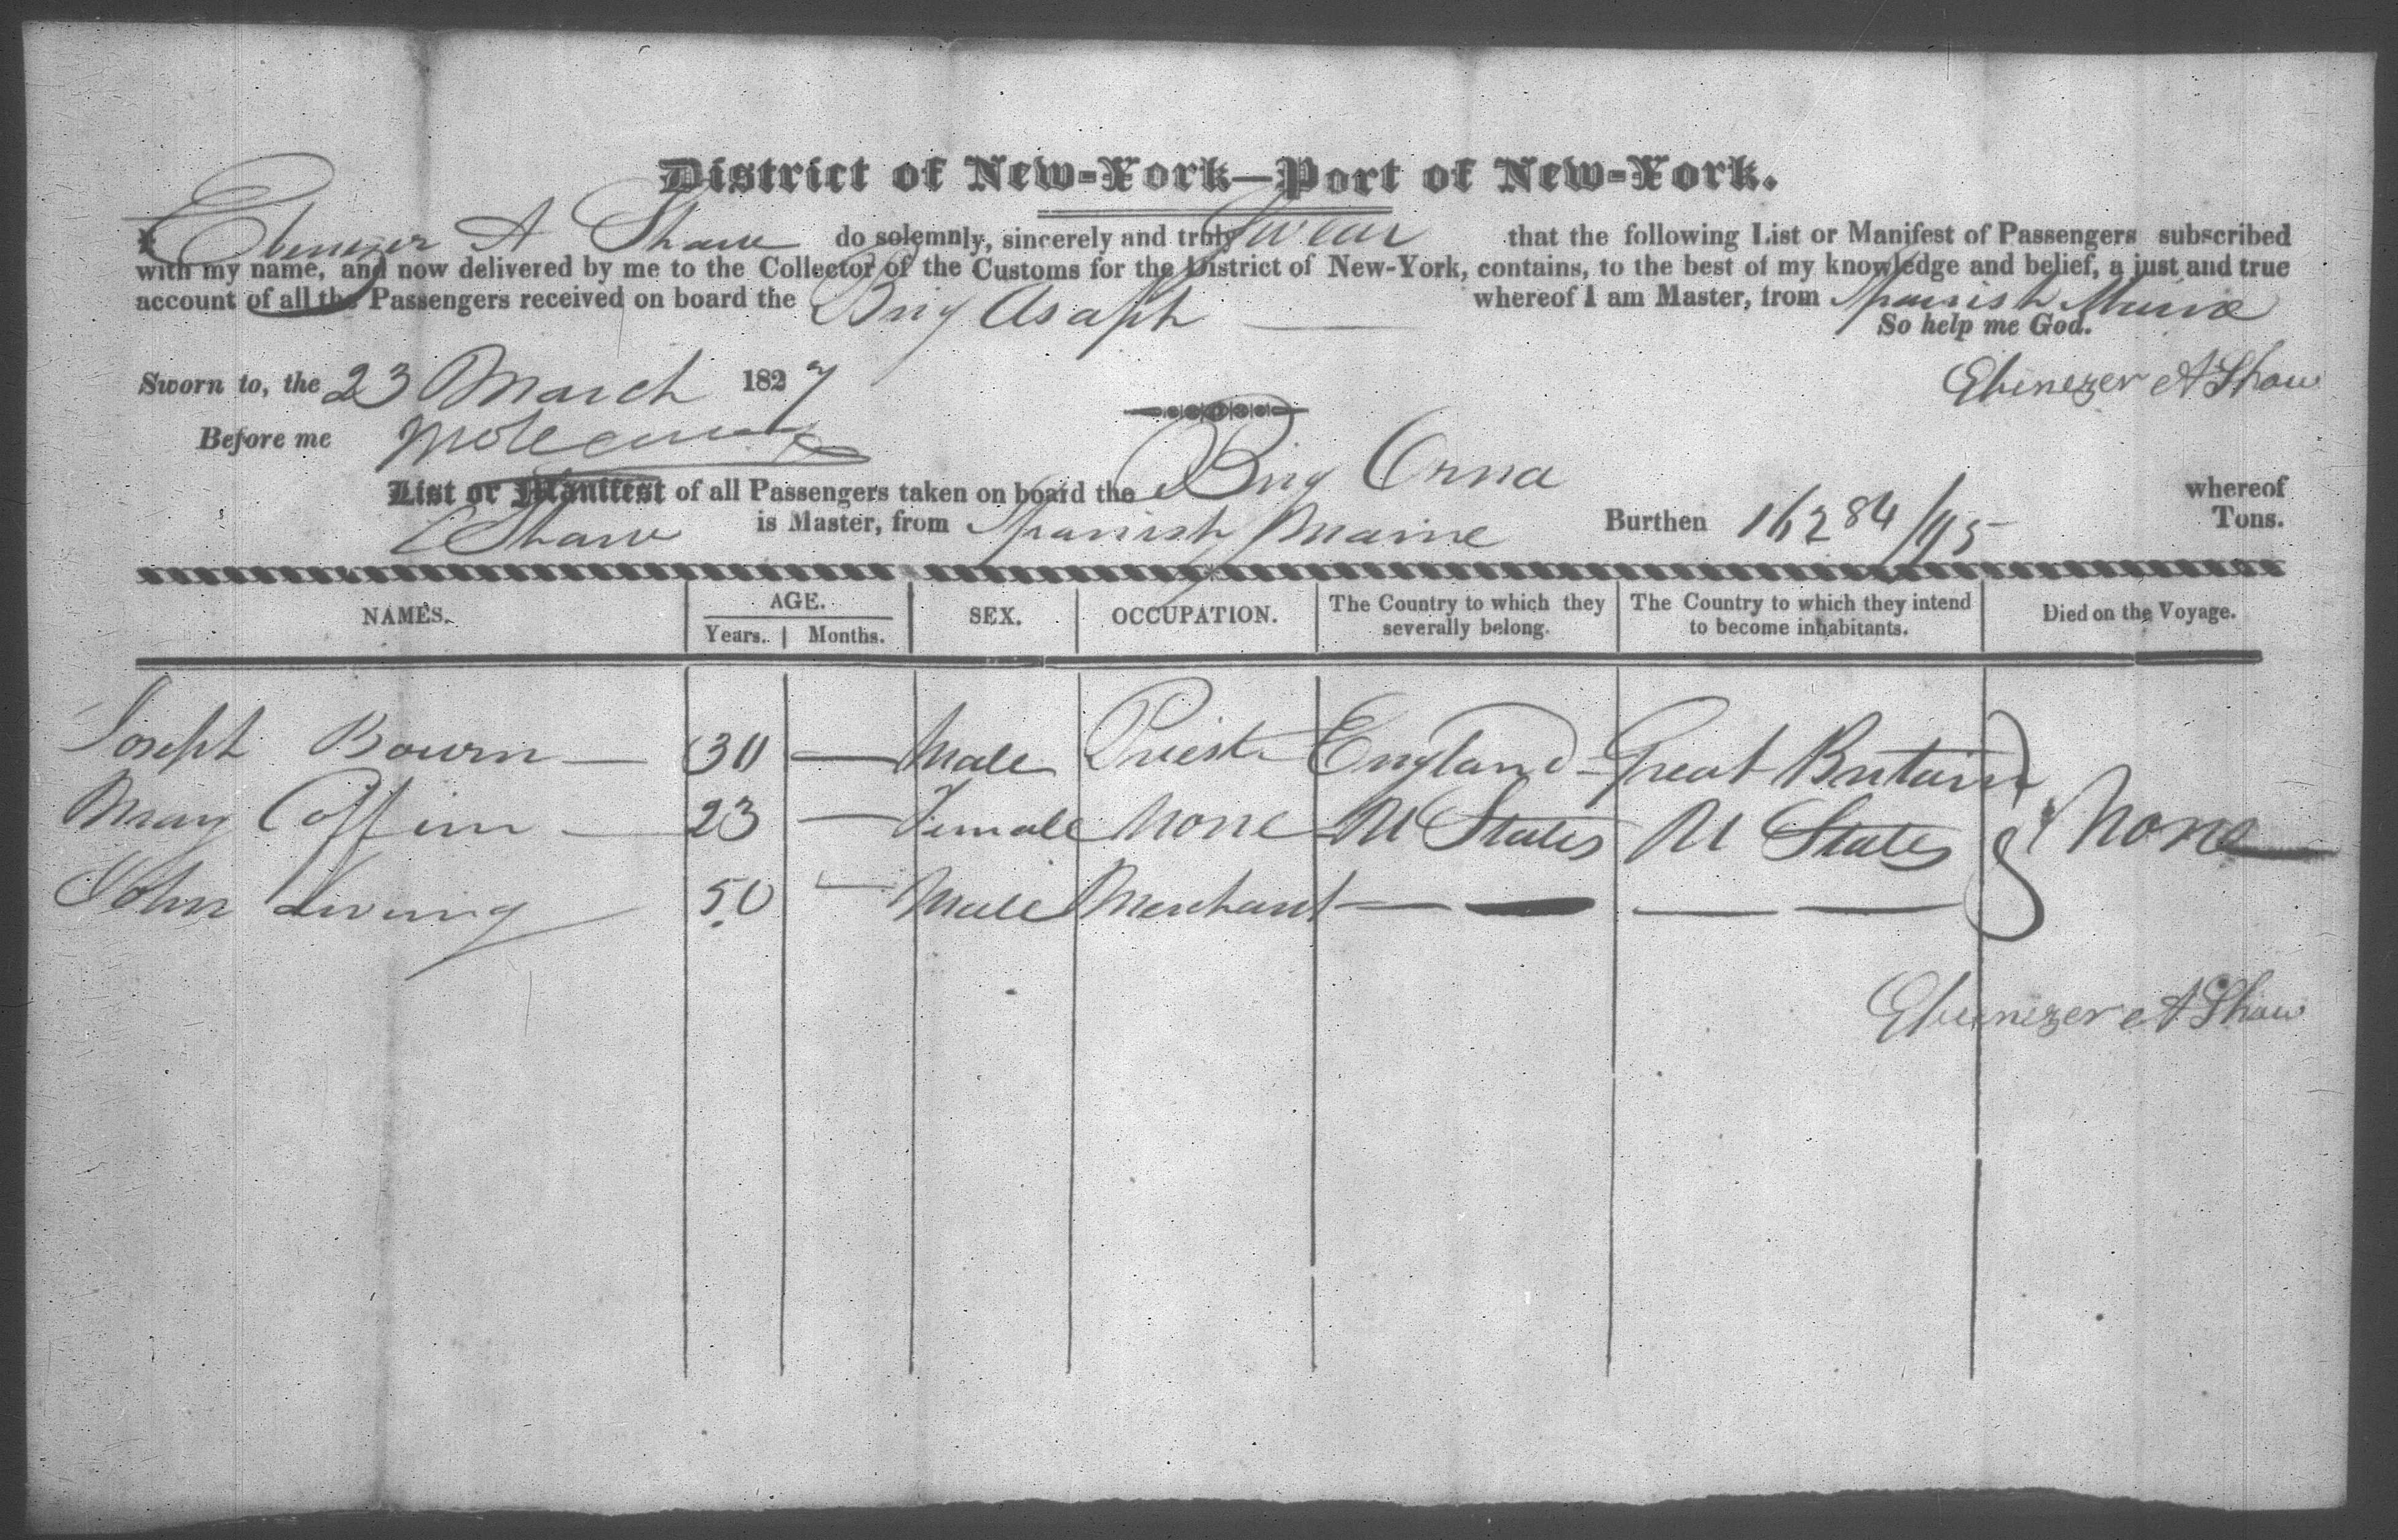 District of New-York—Port of New-York.
I Ebenezer A Shaw do solemnly, sincerely and truly Swear that the following List or Manifest of Passengers subscribed
with my name, and now delivered by me to the Collector of the Customs for the District of New-York, contains, to the best of my knowledge and belief, a just and true
account of all the Passengers received on board the Brig Asaph whereof I am Master, from Spanish Maine
So help me God.
Sworn to, the 23 March 1827
Ebenezer A Shaw
Before me
List or Manifest of all Passengers taken on board the Brig whereof
E Shaw is Master, from Spanish Maine Burthen 162 84/95 Tons.
NAMES. AGE. SEX. OCCUPATION. The Country to which they severally belong. The Country to which they intend to become inhabitants. Died on the Voyage.
Years. Months.
Joseph Bourn — 30 — Male Priest England — Great Britain
Mary Coffin — 23 — Female None U States U States None
John 50 — Male Merchant — — — —
Ebenezer A Shaw